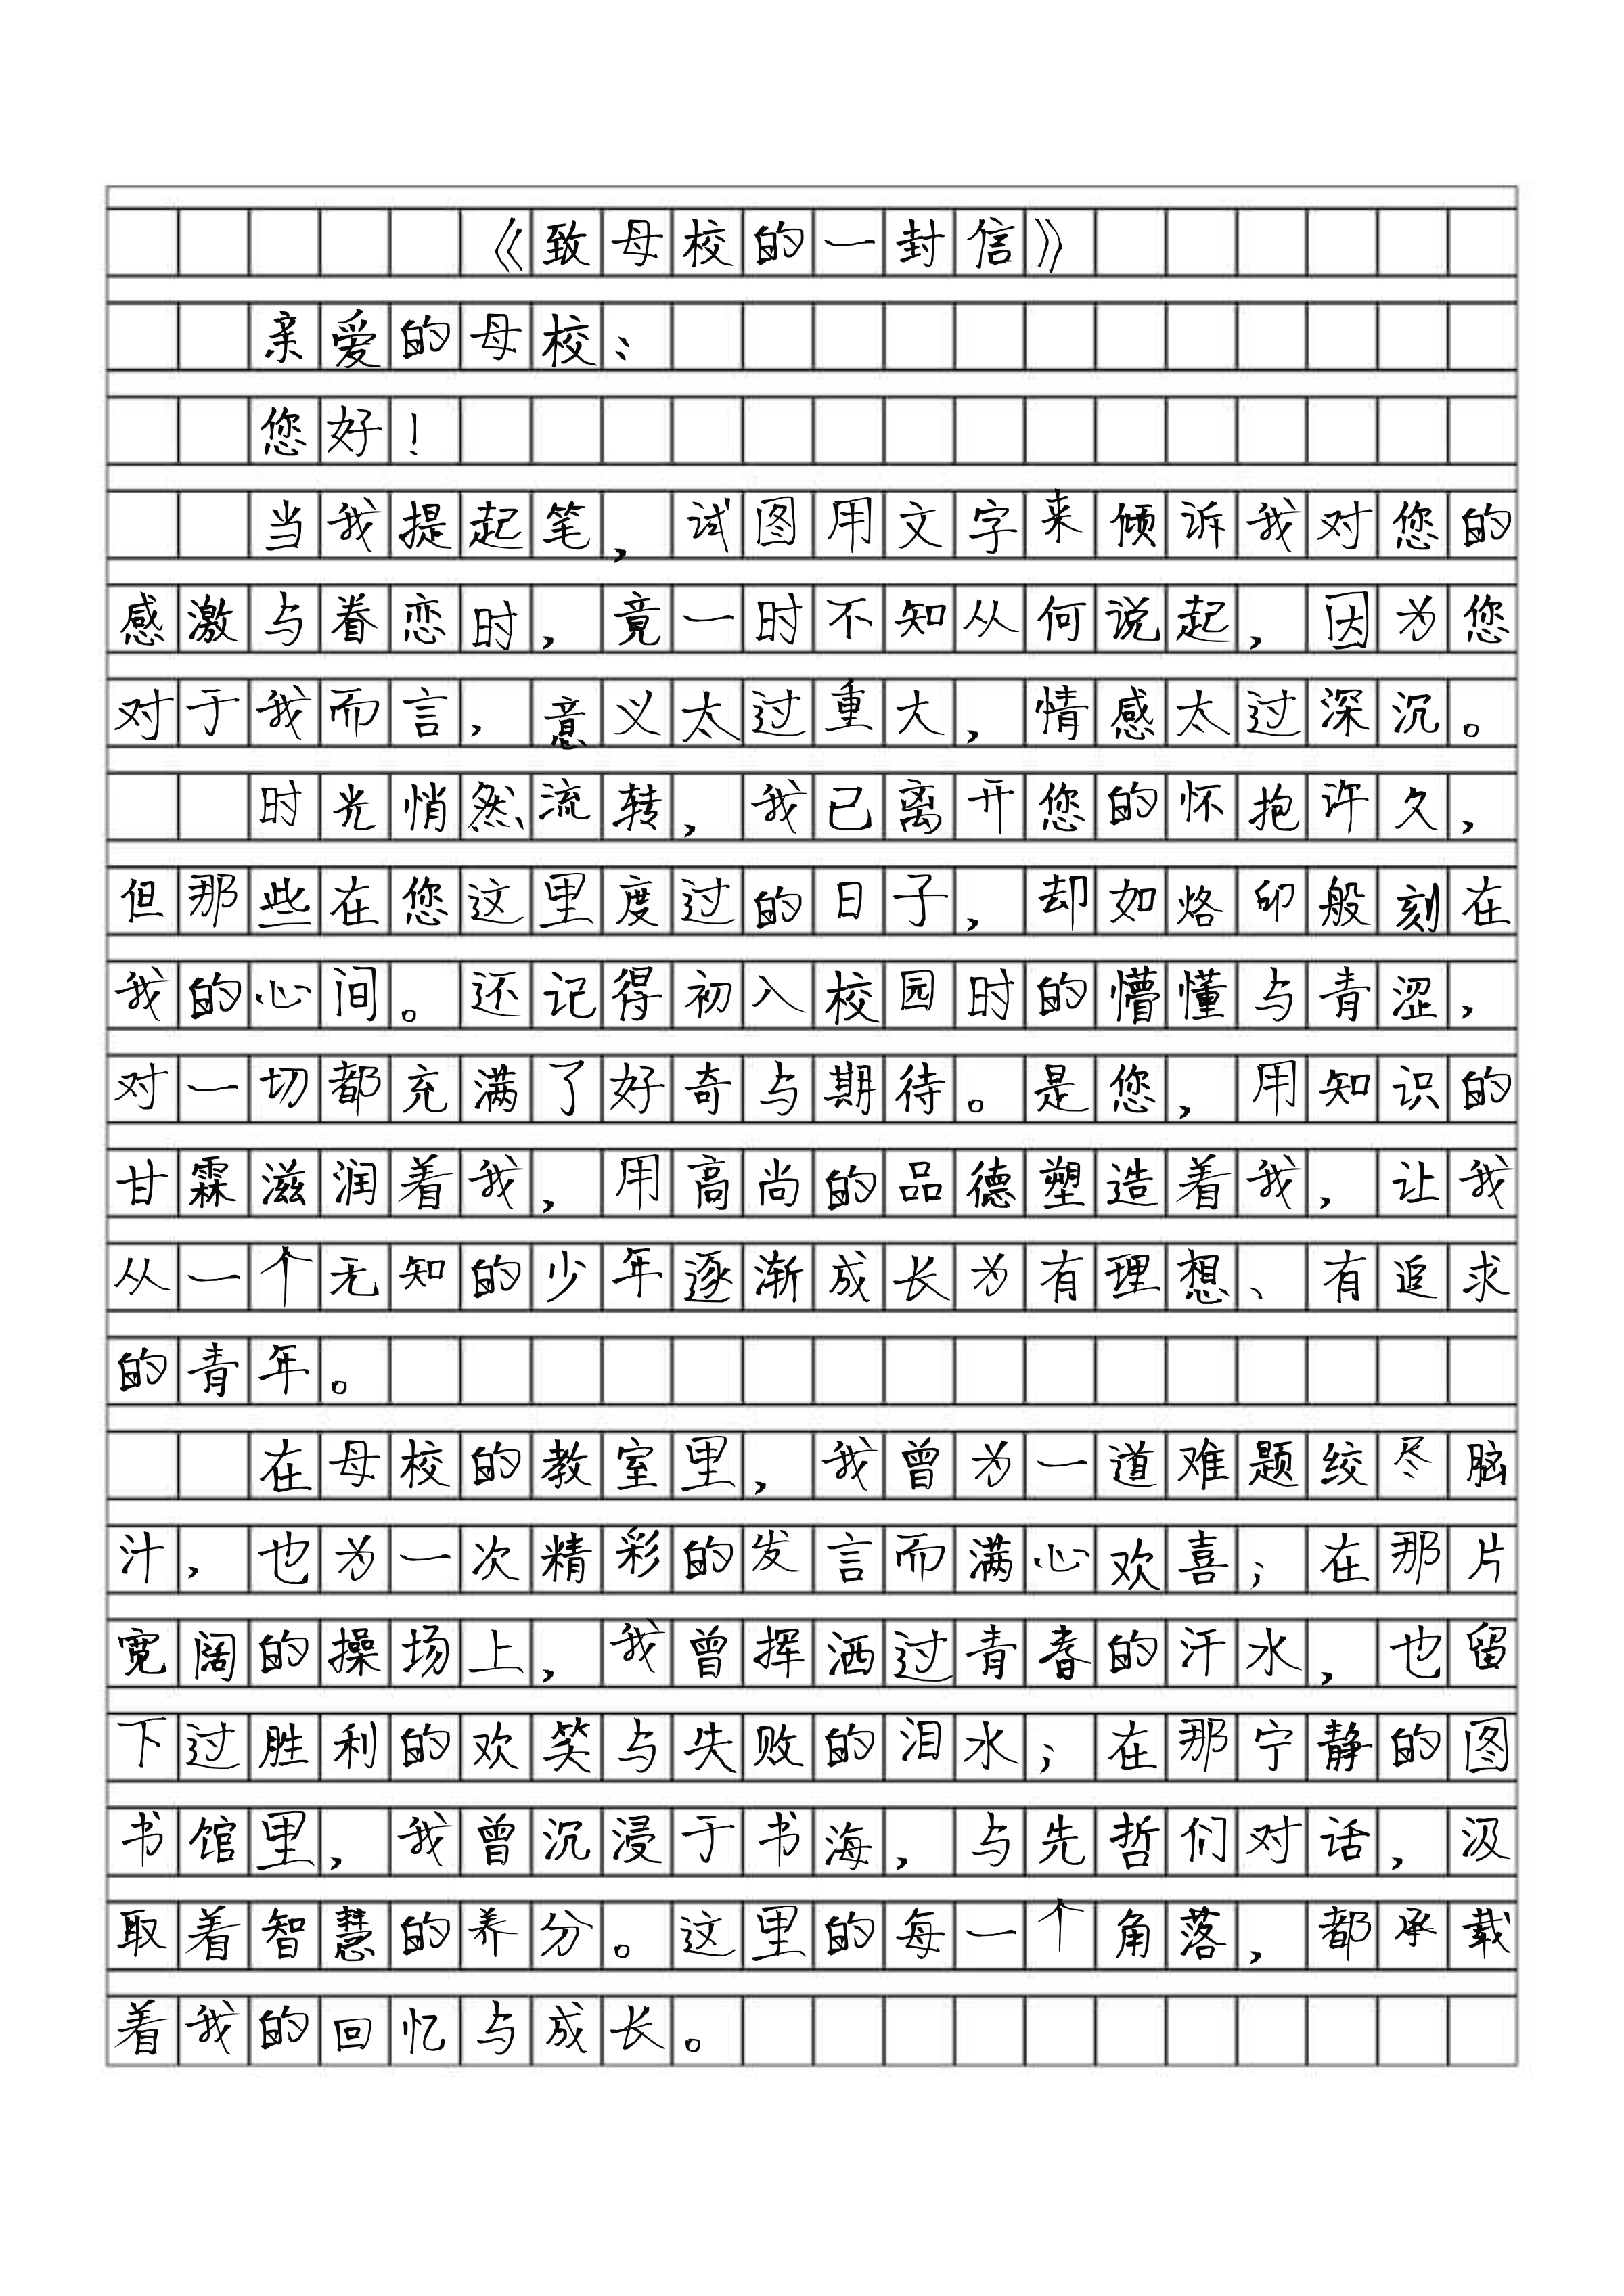 《致母校的一封信》
亲爱的母校：
您好！
当我提起笔，试图用文字来倾诉我对您的
感激与眷恋时，竟一时不知从何说起，因为您
对于我而言，意义太过重大，情感太过深沉。
时光悄然流转，我已离开您的怀抱许久，
但那些在您这里度过的日子，却如烙印般刻在
我的心间。还记得初入校园时的懵懂与青涩，
对一切都充满了好奇与期待。是您，用知识的
甘霖滋润着我，用高尚的品德塑造着我，让我
从一个无知的少年逐渐成长为有理想、有追求
的青年。
在母校的教室里，我曾为一道难题绞尽脑
汁，也为一次精彩的发言而满心欢喜；在那片
宽阔的操场上，我曾挥洒过青春的汗水，也留
下过胜利的欢笑与失败的泪水；在那宁静的图
书馆里，我曾沉浸于书海，与先哲们对话，汲
取着智慧的养分。这里的每一个角落，都承载
着我的回忆与成长。